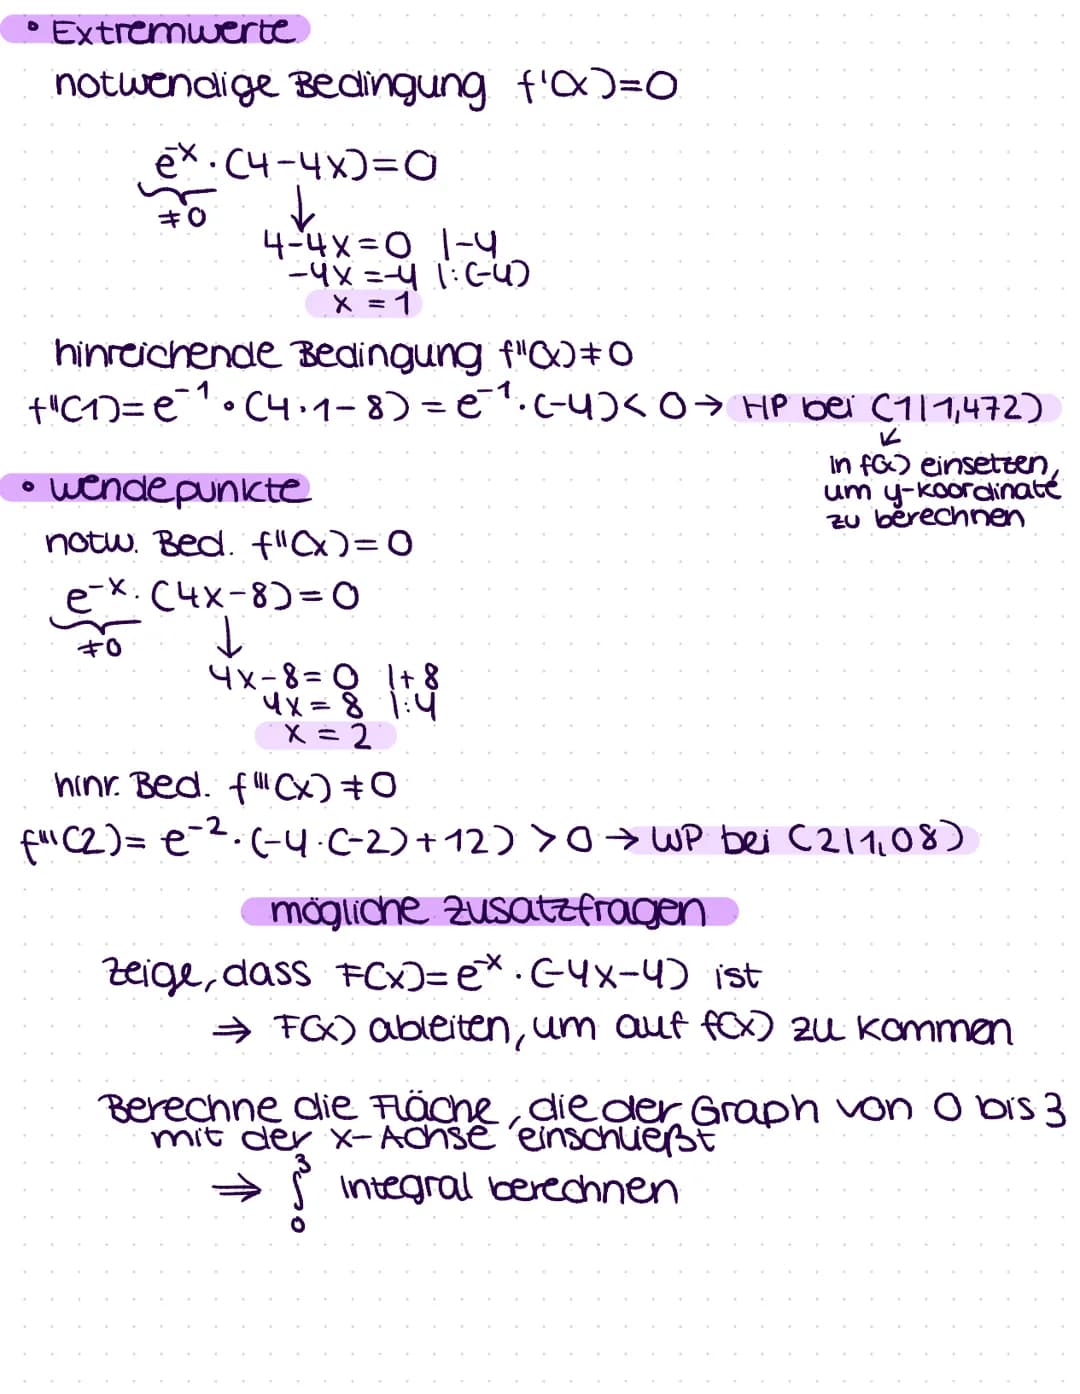 • Extremwerte
notwendige Bedingung f'(x)=0
e^-x · (4-4x)=0
≠0
↓
4-4x=0 |-4
-4x=-4 |:(-4)
x = 1
hinreichende Bedingung f''(x)≠0
f''(1)= e^-1 · (4·1-8) = e^-1 · (-4) < 0 → HP bei (1|1,472)
in f(x) einsetzen,
um y-Koordinate
zu berechnen
• Wendepunkte
notw. Bed. f''(x)=0
e^-x · (4x-8)=0
≠0
↓
4x-8=0 |+8
4x=8 |:4
x = 2
hinr. Bed. f'''(x)≠0
f'''(2)= e^-2 · (-4·(-2)+12) > 0 → WP bei (2|1,08)
mögliche Zusatzfragen
Zeige, dass F(x)= e^-x · (-4x-4) ist
⇒ F(x) ableiten, um auf f(x) zu kommen
Berechne die Fläche, die der Graph von 0 bis 3
mit der x-Achse einschließt
⇒ ∫₀³ Integral berechnen